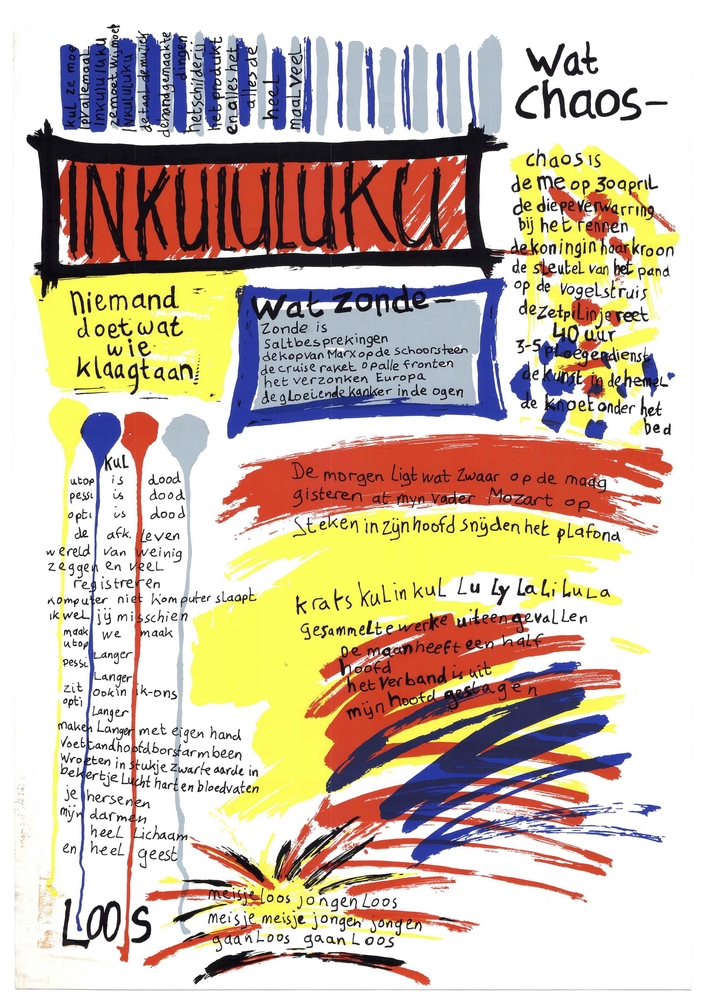 kul ze moe
lprallemaal
Inkululuku
zemoet wijmoet
Inkululuku
de taal de muziek
de handgemaakte
dingen
het schilderij
het produkt
en alles het
alles de
heel
maal veel
Wat
chaos—
INKULULUKU
chaos is
de me op 30 april
de diepe verwarring
bij het rennen
de koningin haar kroon
de sleutel van het pand
op de vogelstruis
de zetpil in je reet
40 uur
3-5 ploegendienst
de kunst in de hemel
de knoet onder het
bed
Niemand
doet wat
wie
klaagt aan
Wat zonde—
Zonde is
saltbesprekingen
de kop van Marx op de schoorsteen
de cruise raket op alle fronten
het verzonken Europa
de gloeiende kanker in de ogen
kul
utop is dood
pessi is dood
opti is dood
de afk. leven
wereld van weinig
zeggen en veel
registreren
komputer niet komputer slaapt
ik wel jij misschien
maak we maak
utop
Langer
pessi
Langer
zit ook in ik-ons
opti
Langer
maken Langer met eigen hand
voet tand hoofd borst arm been
Wroeten in stukje zwarte aarde in
bekertje lucht hart en bloedvaten
je hersenen
mijn darmen
heel lichaam
en heel geest
LOOS
De morgen ligt wat zwaar op de maag
gisteren at mijn vader Mozart op
Steken in zijn hoofd snijden het plafond
krats kul in kul Lu Ly La Li Lu La
Gesammelte werke uiteengevallen
De maan heeft een half
hoofd
het verband is uit
mijn hoofd geslagen
meisje loos jongen Loos
meisje meisje jongen jongen
gaan Loos gaan Loos